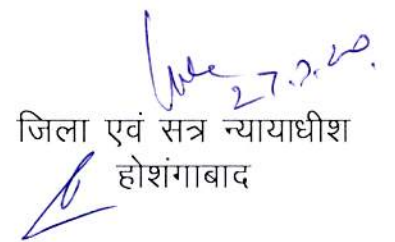 27.7.20.
जिला एवं सत्र न्यायाधीश
होशंगाबाद